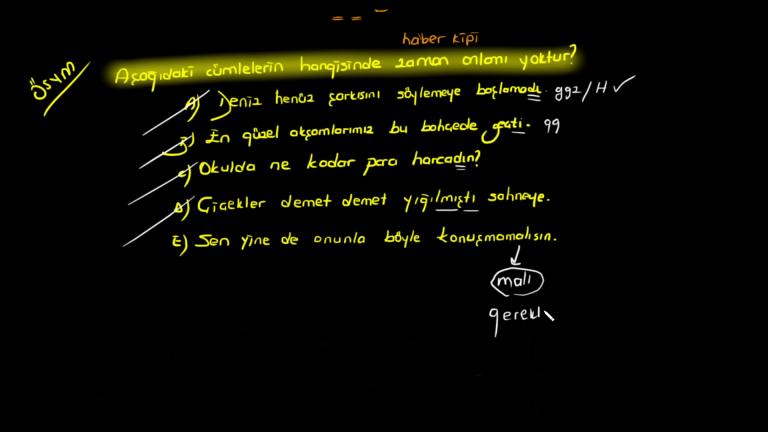 haber kipi
ÖSYM
Aşağıdaki cümlelerin hangisinde zaman anlamı yoktur?
A) Deniz henüz şarkısını söylemeye başlamadı. ggz / H ✓
B) En güzel akşamlarımız bu bahçede geçti. gg
C) Okulda ne kadar para harcadın?
D) Çiçekler demet demet yığılmıştı sahneye.
E) Sen yine de onunla böyle konuşmamalısın.
malı
gerekli